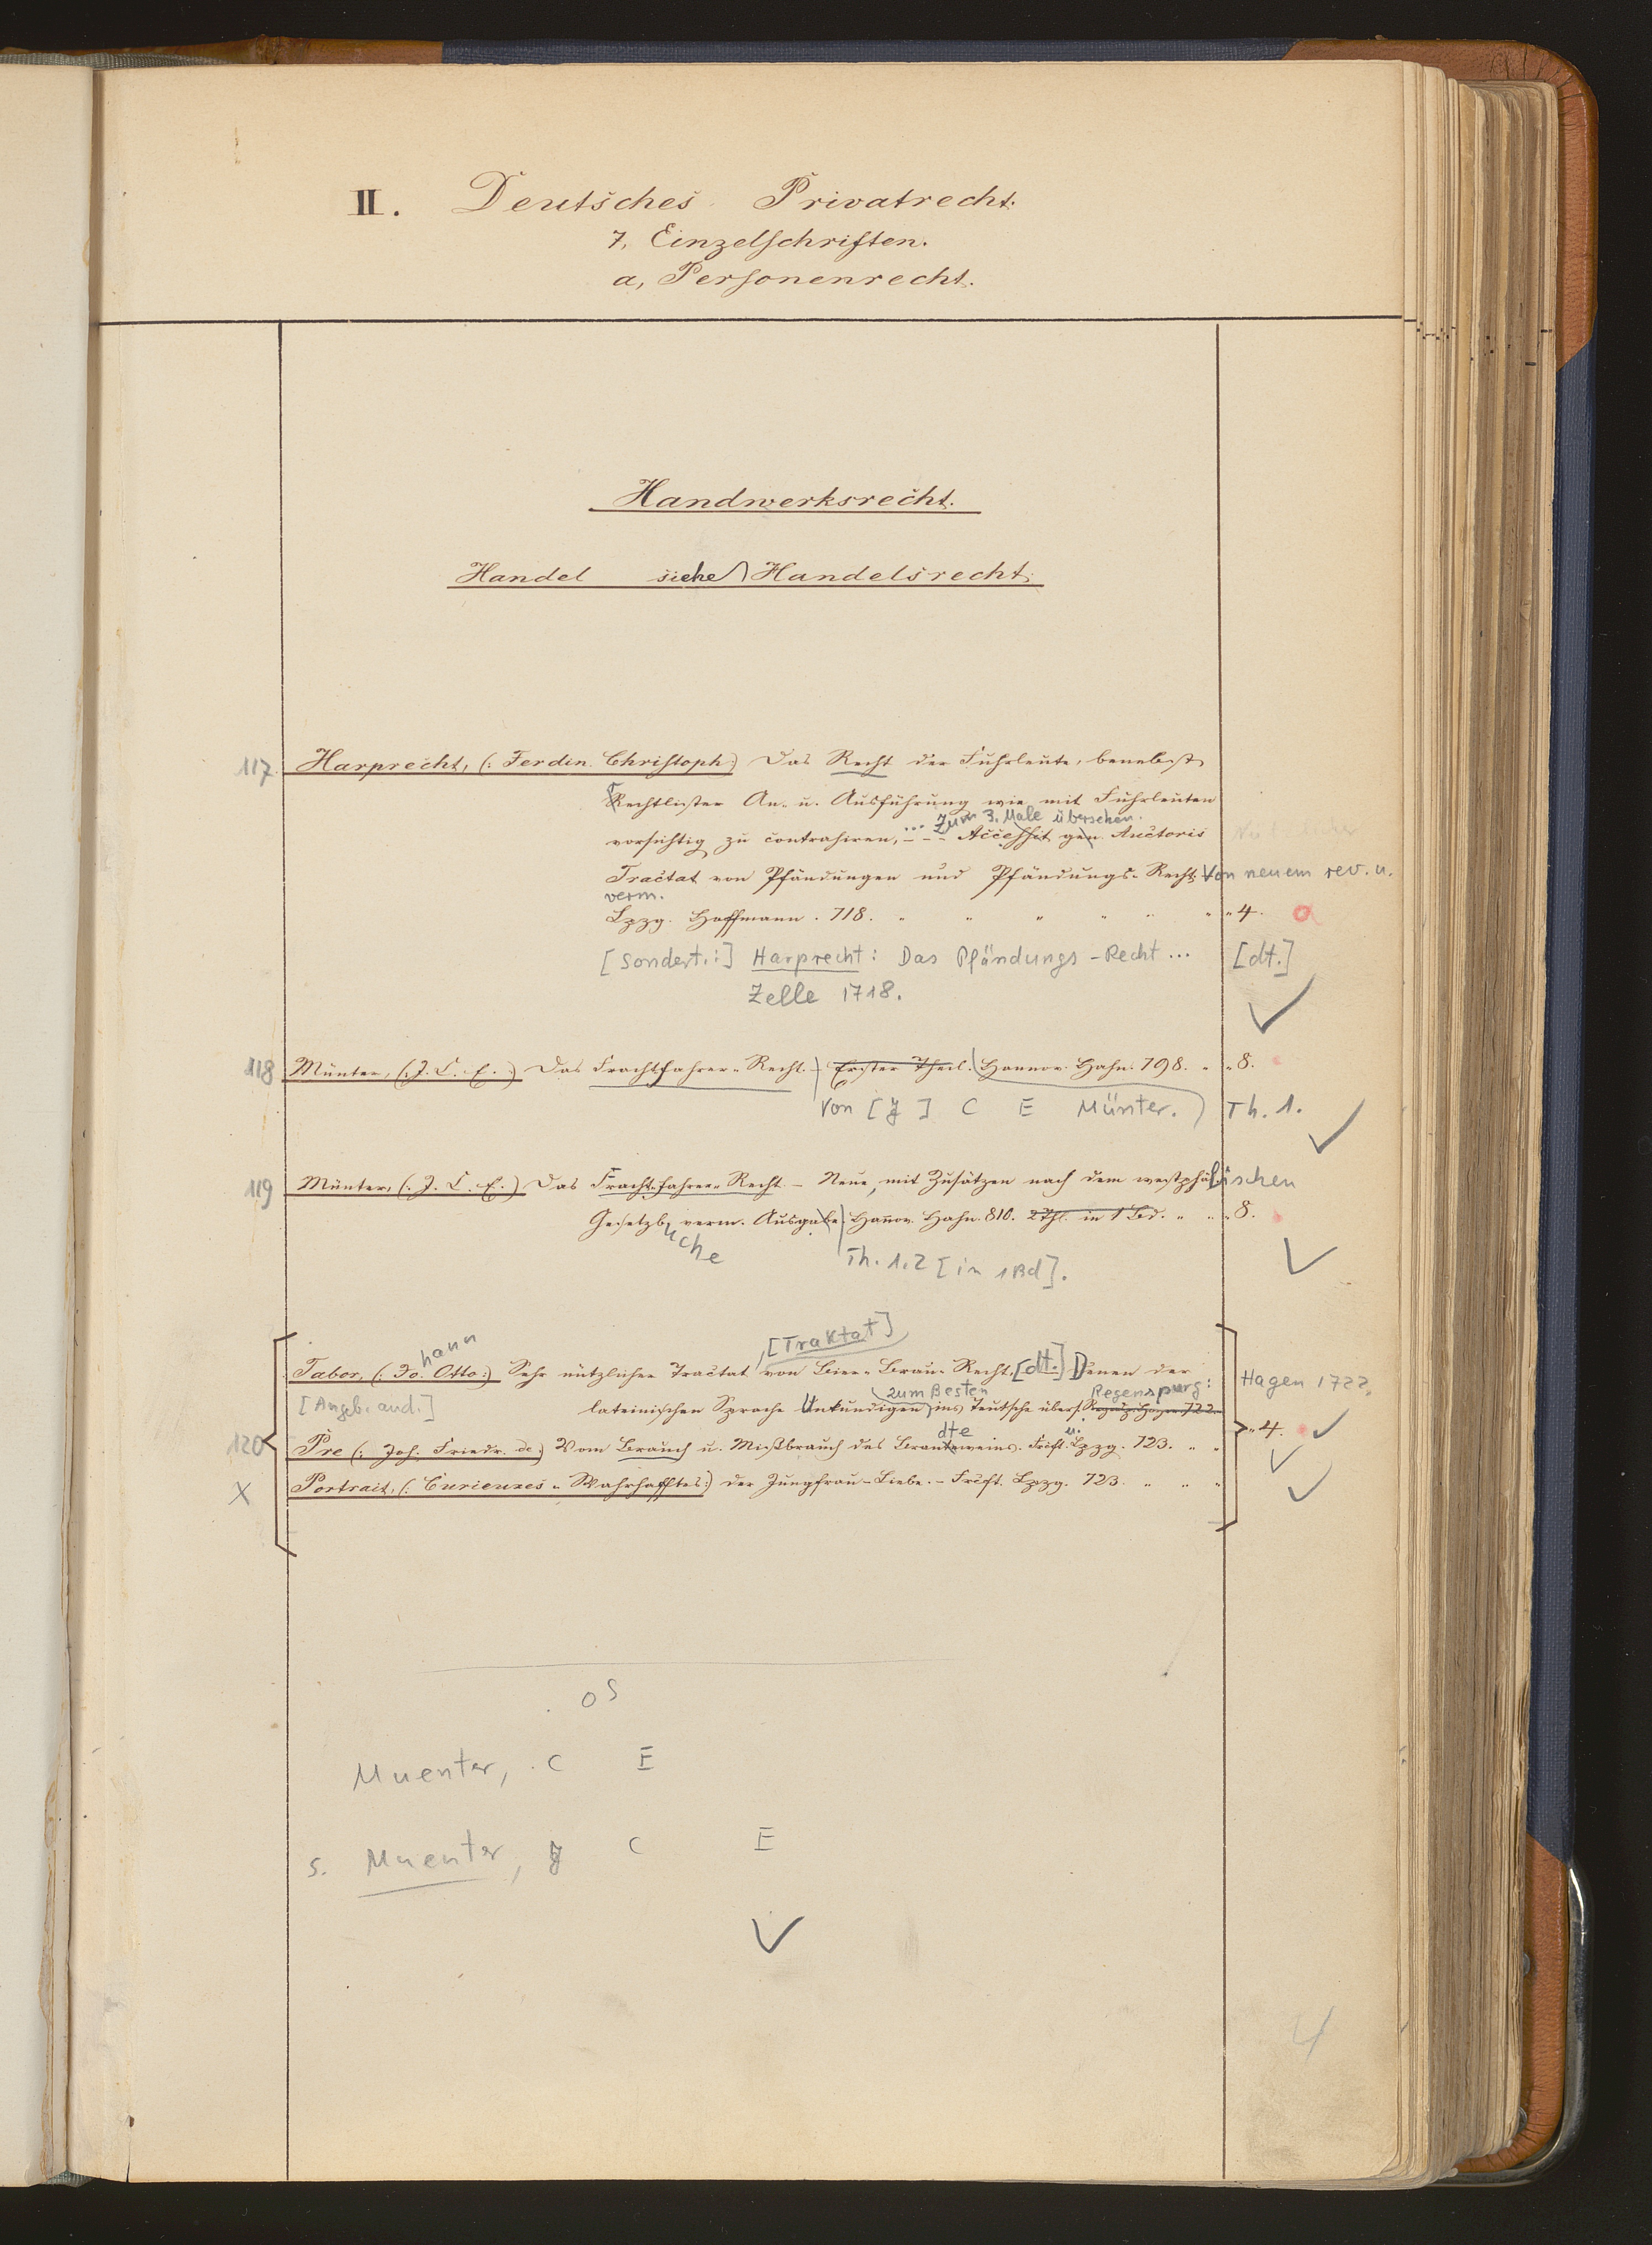 II. Deutsches Privatrecht.
7, Einzelschriften.
a, Personenrecht.
Handwerksrecht.
Handel siehe Handelsrecht.
117. Harprecht, (: Ferdin. Christoph:) Das Recht der Fuhrleute, benebst
Rechtlicher An- u. Ausführung wie mit Fuhrleuten
... Zum 3. Male übersehen.
vorsichtig zu contrahiren, - - - Accessit gen. Auctoris
Tractat von Pfändungen und Pfändungs-Recht. Von neuem rev. u.
verm.
Lpzg. Hoffmann. 718. " " " " " " "4.
[Sondert.:] Harprecht: Das Pfändungs-Recht... [dt.]
Zelle 1718.
118 Münter, (: J. C. E. :) Das Frachtfahrer-Recht. Erster Theil. Hannov. Hahn. 798. " "8.
Von [J] C E Münter. Th. 1.
119 Münter, (: J. C. E. :) Das Frachtfahrer-Recht. - Neue, mit Zusätzen nach dem westphälischen
Gesetzbuche verm. Ausgabe. Hannov. Hahn. 810. 2 Thl. in 1 Bd. " " "8.
Th. 1.2 [in 1 Bd].
[Traktat]
Tabor, (: Jo. Otto:) Sehr nützlicher Tractat von Bier-Brau-Recht. [dt.] Denen der Hagen 1722.
hann
zum Besten Regenspurg:
[Angeb. and.] lateinischen Sprache Unkundigen ins Teutsche übers.
120 Pre (: Joh. Friedr. de:) Vom Brauch u. Mißbrauch des Brandteweins. Frcft. u. Lpzg. 723. " " "4.
X Portrait, (: Curieuses - Wahrhafftes:) der Jungfrau-Liebe. - Frcft. Lpzg. 723. " " "
OS
Muenter, . C E
s. Muenter, J C E
4